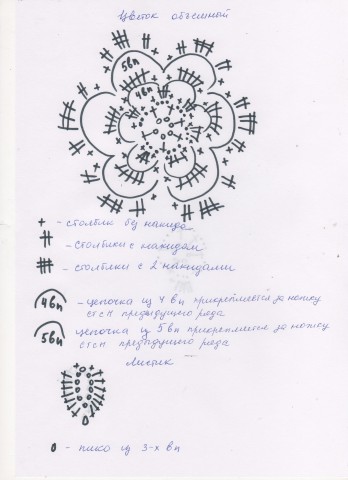 Цветок объемный
5вп
4вп
+ - столбик без накида
- столбики с накидом
- столбики с 2 накидами
4вп - цепочка из 4 вп прикрепляется за ножку
СТСН предыдущего ряда
5вп цепочка из 5 вп прикрепляется за ножку
стсн предыдущего ряда
Листик
- пико из 3-х вп